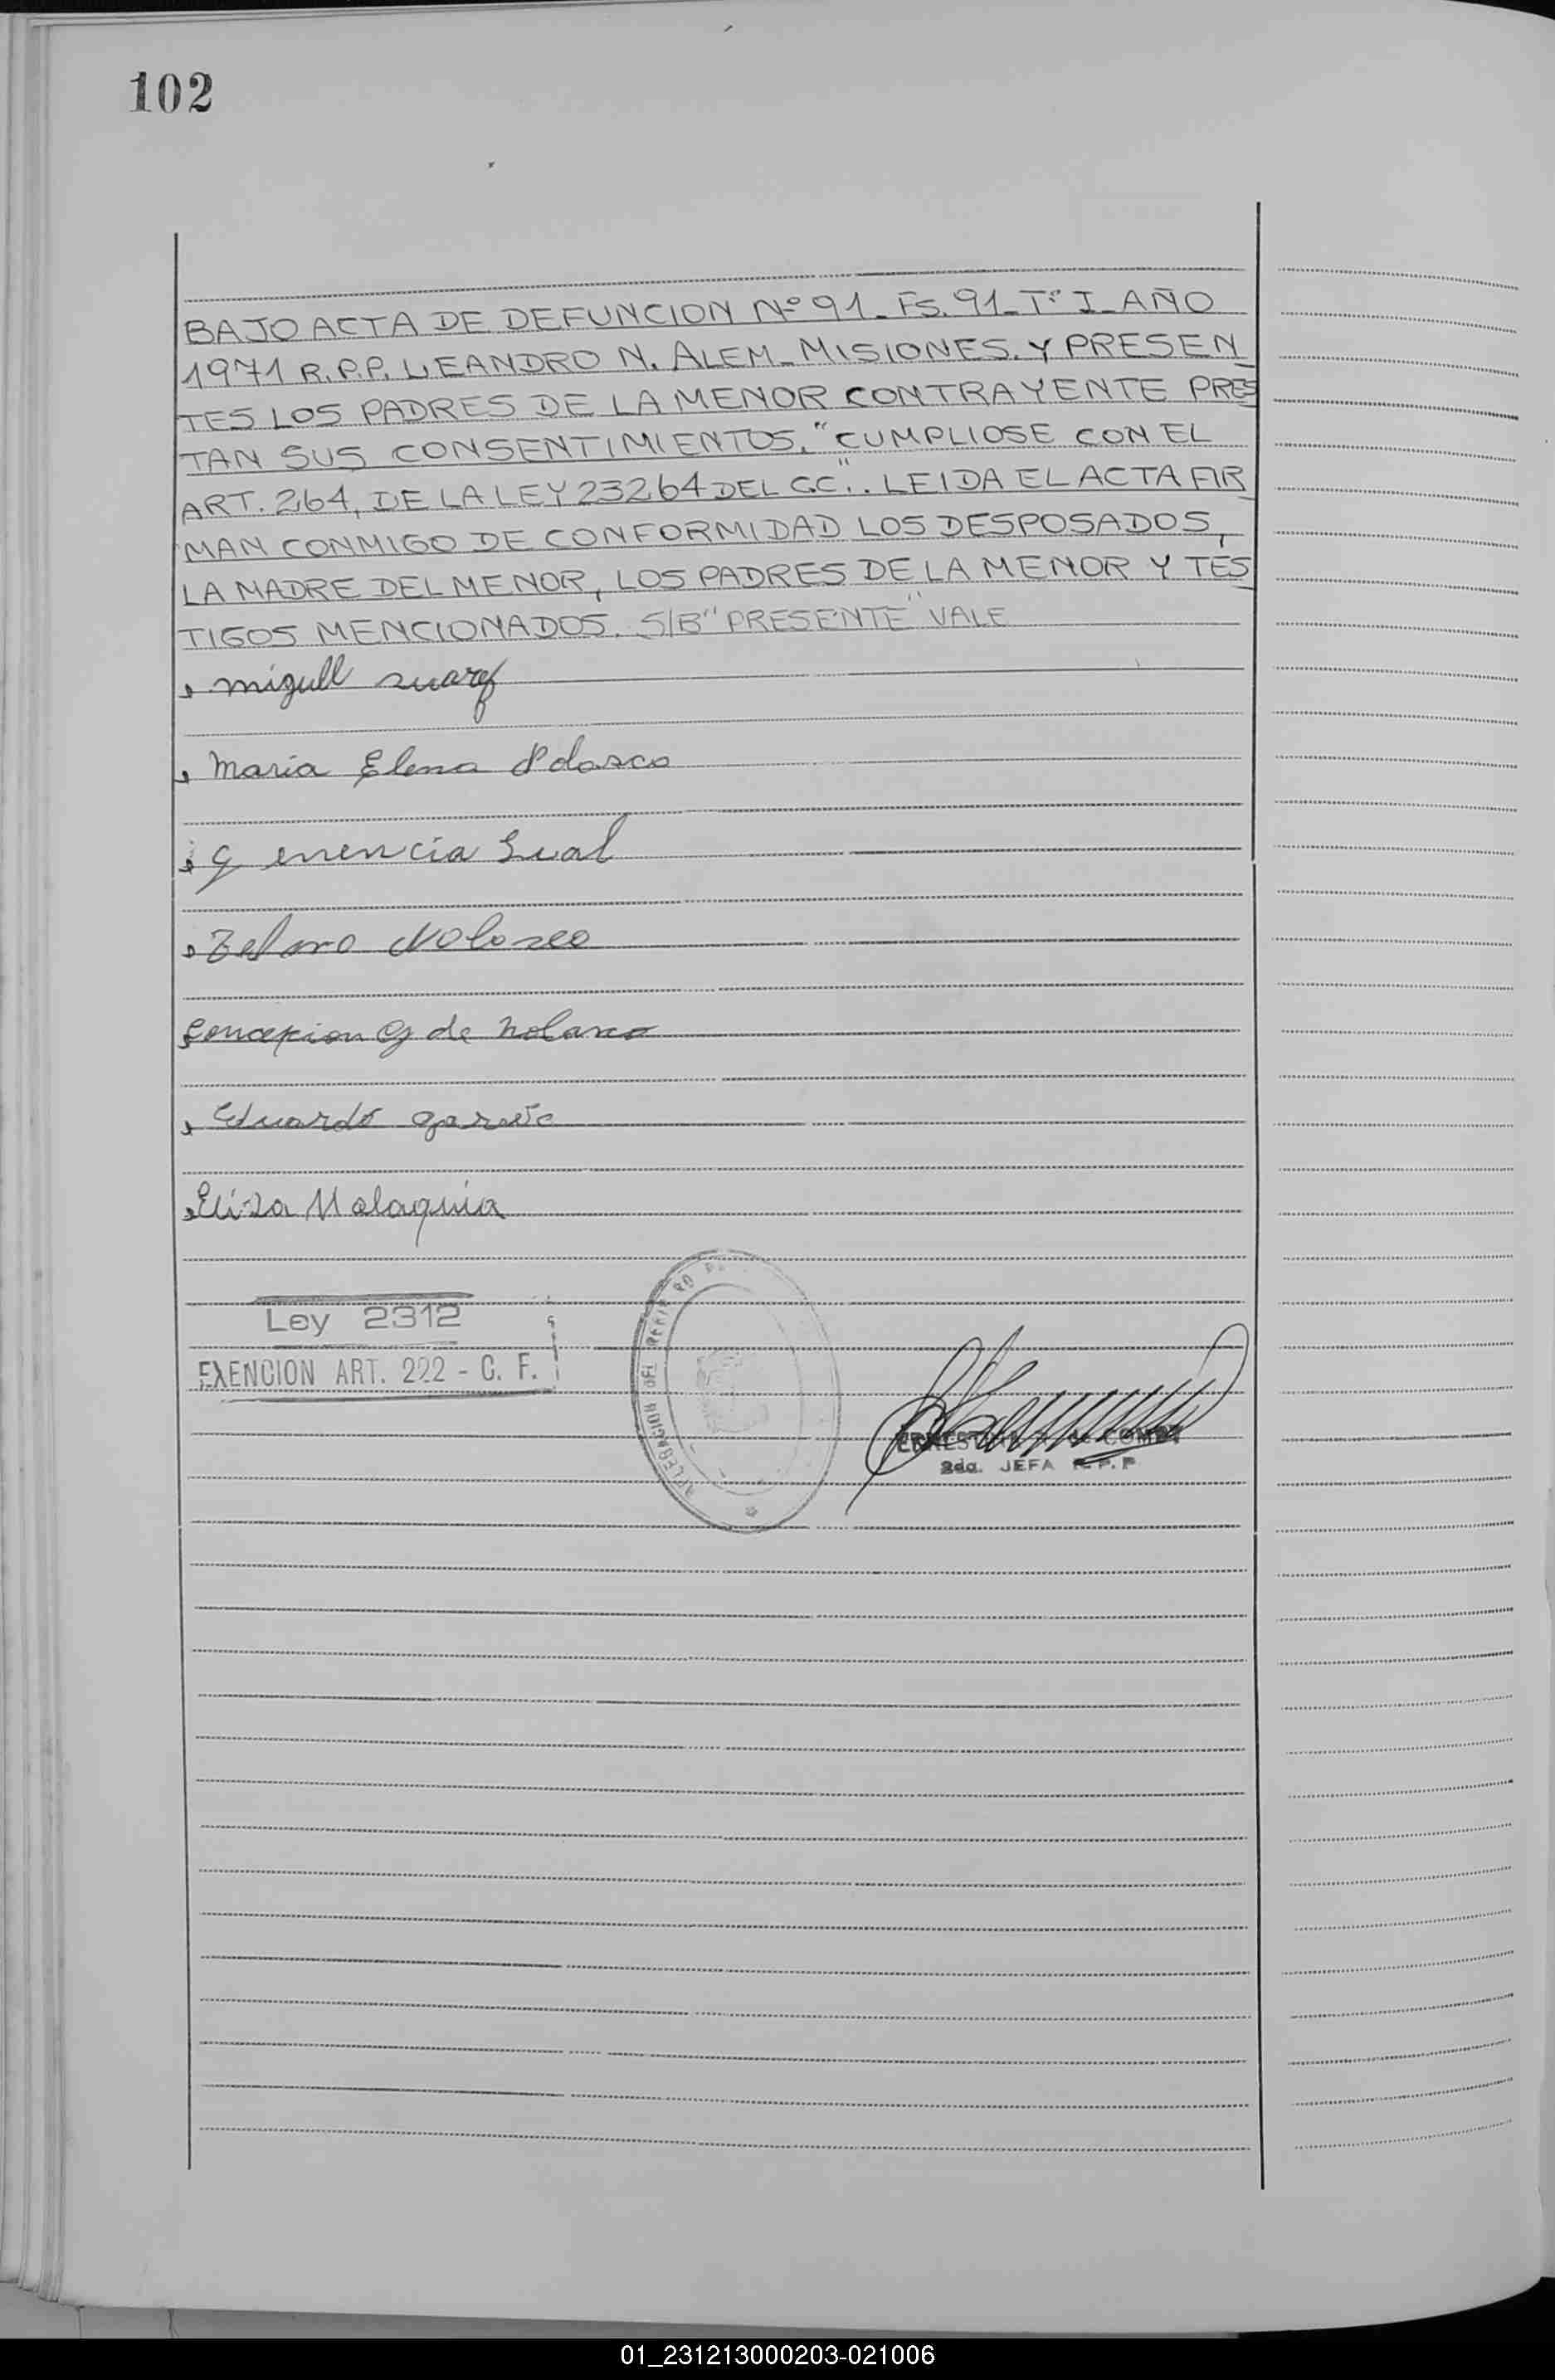 102
BAJO ACTA DE DEFUNCION Nº 91_Fs. 91_Tº I_AÑO
1971 R.P.P. LEANDRO N. ALEM_MISIONES. Y PRESEN
TES LOS PADRES DE LA MENOR CONTRAYENTE PRES
TAN SUS CONSENTIMIENTOS. "CUMPLIOSE CON EL
ART. 264, DE LA LEY 23264 DEL C.C.". LEIDA EL ACTA FIR
MAN CONMIGO DE CONFORMIDAD LOS DESPOSADOS,
LA MADRE DEL MENOR, LOS PADRES DE LA MENOR Y TES
TIGOS MENCIONADOS. S/B "PRESENTE" VALE
miguell
Maria Elena
Concepcion G de Nolasco
Eduardo
Eliza Malaquia
Ley 2312
EXENCION ART. 222 - C. F.
DELEGACION DEL
2da. JEFA R.P.P
01_231213000203-021006